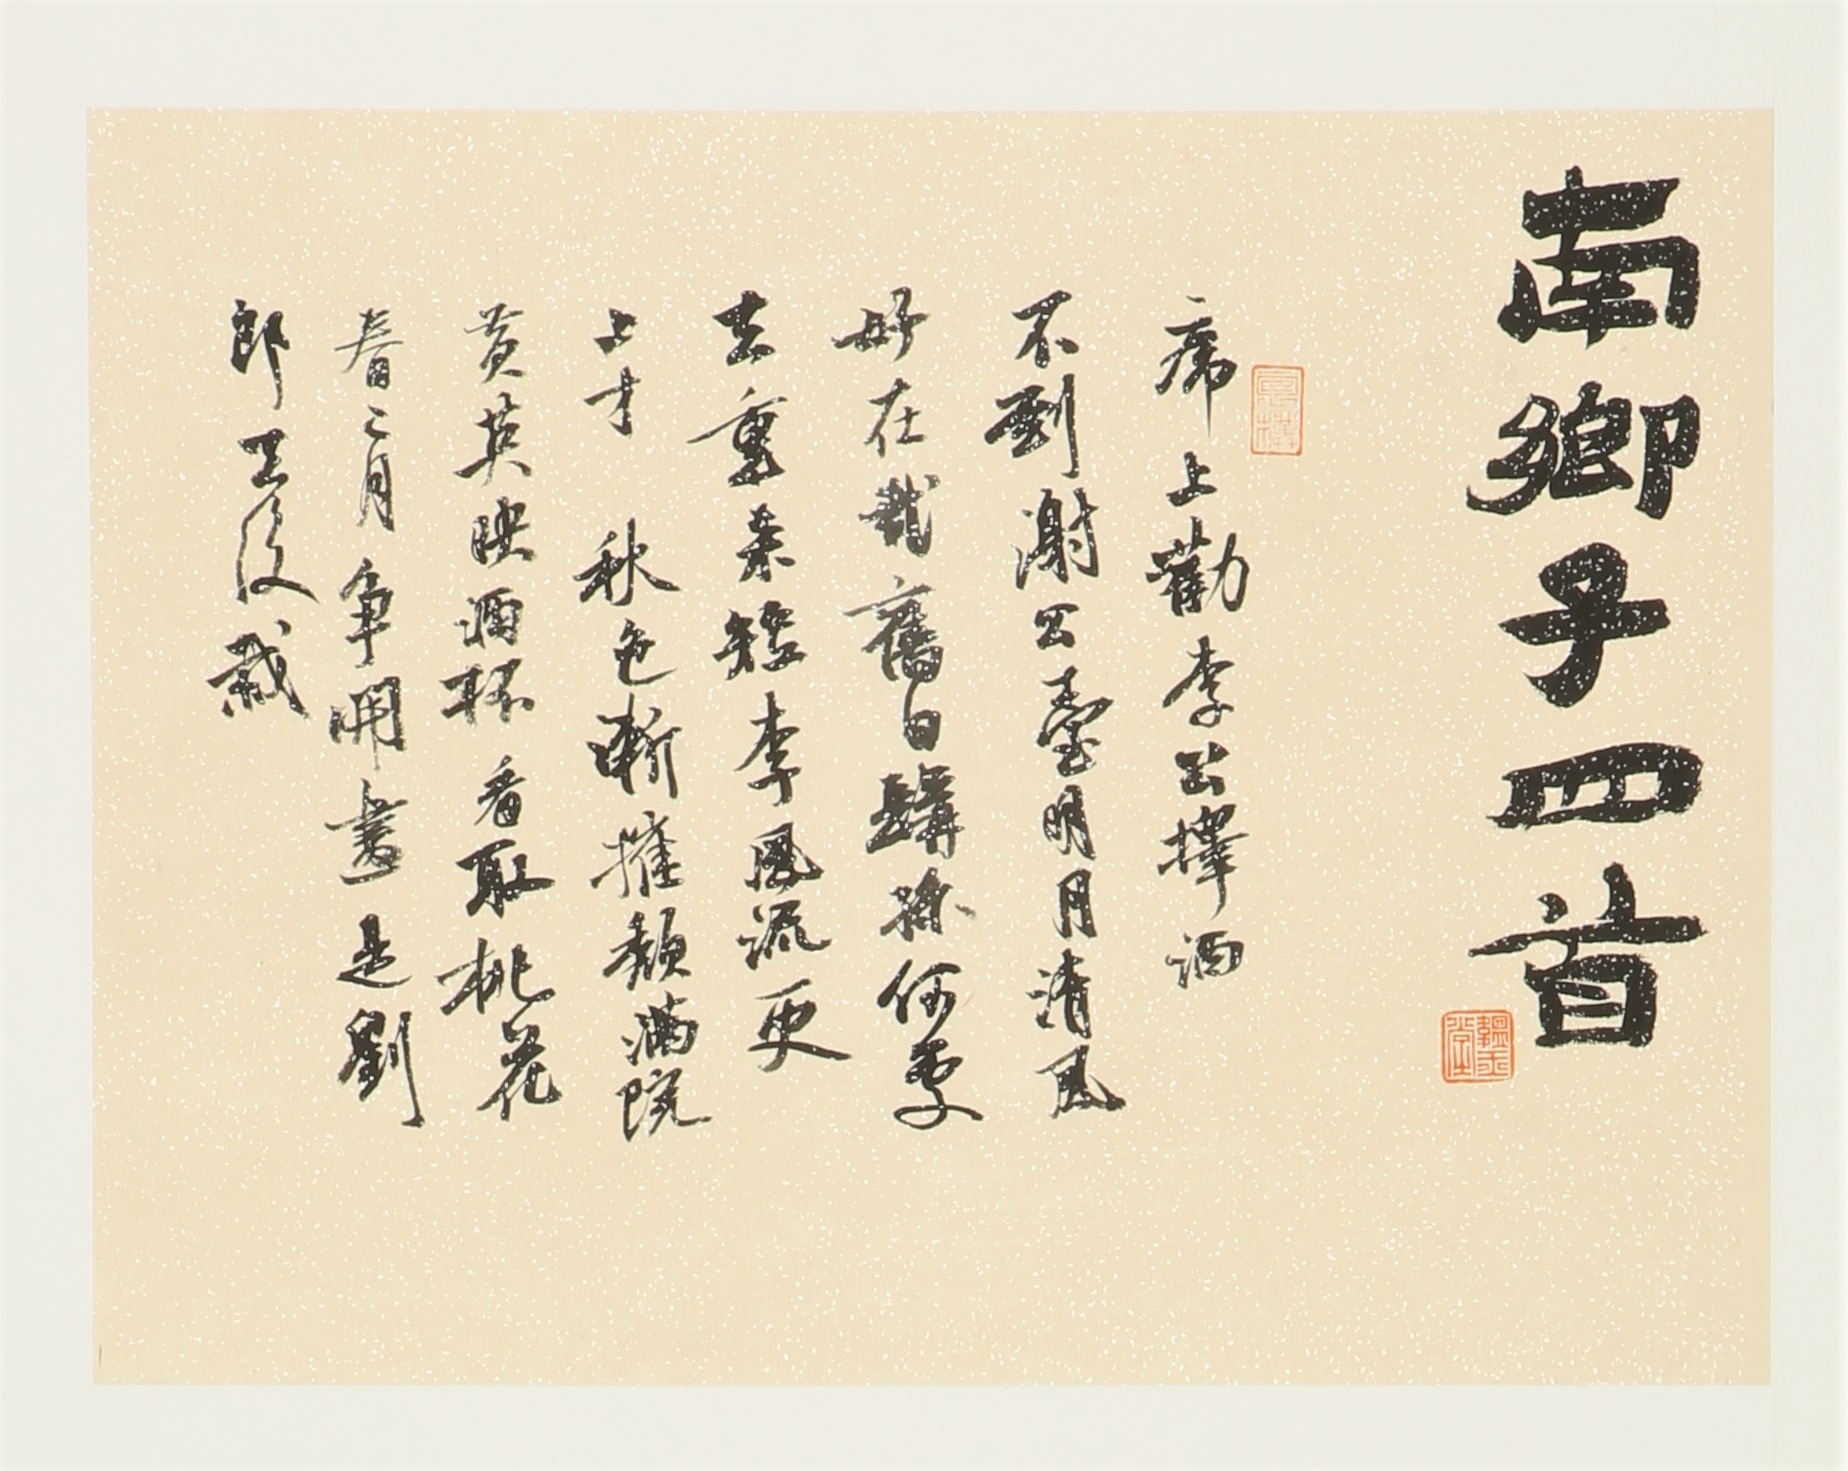 南鄉子四首
席上勸李公擇酒
不到謝公臺明月清風
好在哉舊日髯孫何處
去重來短李風流更
上才 秋色漸摧頹滿院
黃英映酒杯看取桃花
春二月爭開盡是劉
郎去後栽
韞玉堂